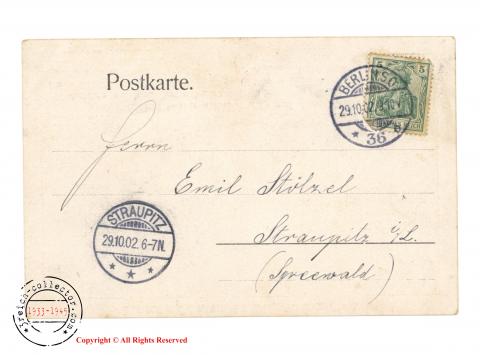 Postkarte.
5 5
BERLIN SO
29.10.02.
* 36
Herrn
Emil Stölzel
STRAUPITZ
29.10.02. 6-7N.
* * *
Straupitz i/L.
(Spreewald)
ireich-collector.com
1933-1945
Copyright © All Rights Reserved